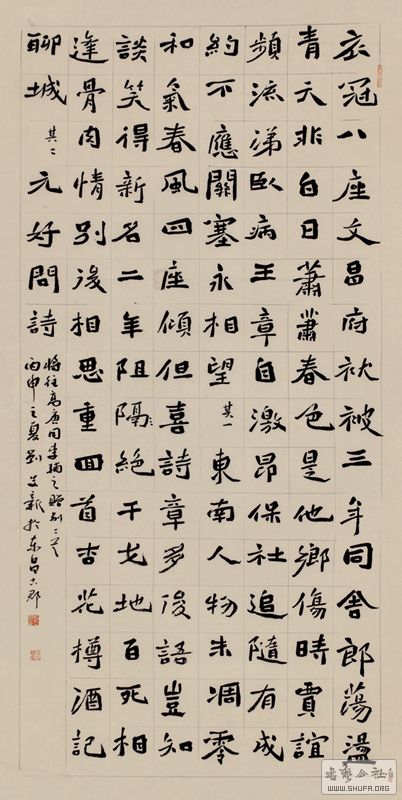 衣冠八座文昌府袱被三年同舍郎蕩盪
青天非白日蕭蕭春色是他鄉傷時賈誼
頻流涕臥病王章自激昂保社追隨有成
約不應關塞永相望 其一 東南人物未凋零
和氣春風四座傾但喜詩章多俊語豈知
談笑得新名二年阻隔絕干戈地百死相
逢骨肉情別後相思重回首杏花樽酒記
聊城 其二 元好問詩
將往高唐同李輔之贈別二首
丙申之夏劉於东昌古郡
書法公社
WWW.SHUFA.ORG